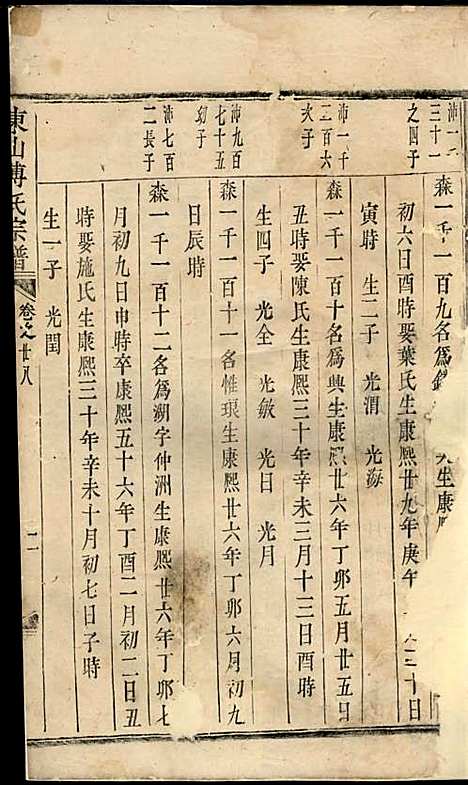 沛一千
三十一
之四子
森一千一百九名為
生康
初六日酉時娶葉氏生康熙廿九年庚午
三十日
寅時 生二子 光渭 光海
沛一千
一百六
次子
森一千一百十名為興生康熙廿六年丁卯五月廿五日
丑時娶陳氏生康熙三十年辛未三月十三日酉時
生四子 光全 光敏 光日 光月
沛九百
七十五
幼子
森一千一百十一名惟琅生康熙廿六年丁卯六月初九
日辰時
沛七百
二長子
森一千一百十二名為湖字仲洲生康熙廿六年丁卯七
月初九日申時卒康熙五十六年丁酉二月初二日丑
時娶施氏生康熙三十年辛未十月初七日子時
生一子 光閏
東山傅氏宗譜
卷之廿八
二